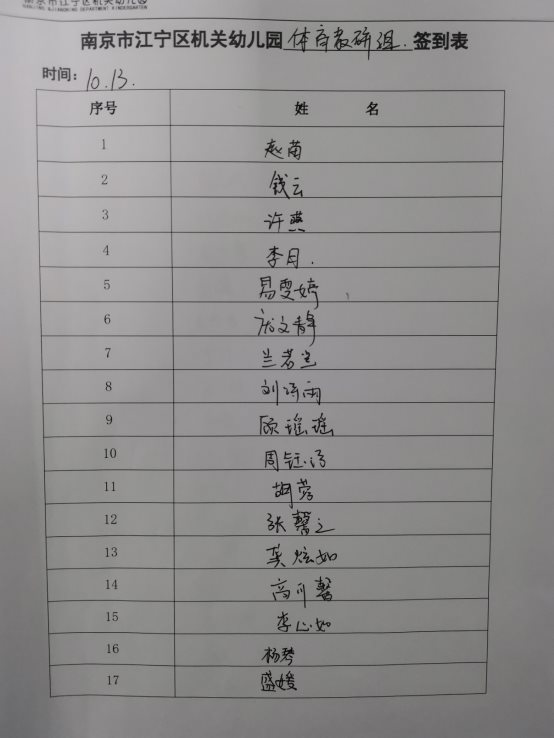 南京市江宁区机关幼儿园
南京市江宁区机关幼儿园 体育教研组. 签到表
时间: 10.13.
序号 姓 名
1 赵苗
2 钱云
3 许燕
4 李月.
5 易雯婷
6 文静
7 兰若兰
8 刘雨
9 顾瑶瑶
10 周钰汤
11 胡蓉
12 张馨之
13 莫炫如
14 高川馨
15 李心如
16 杨琴
17 盛媛